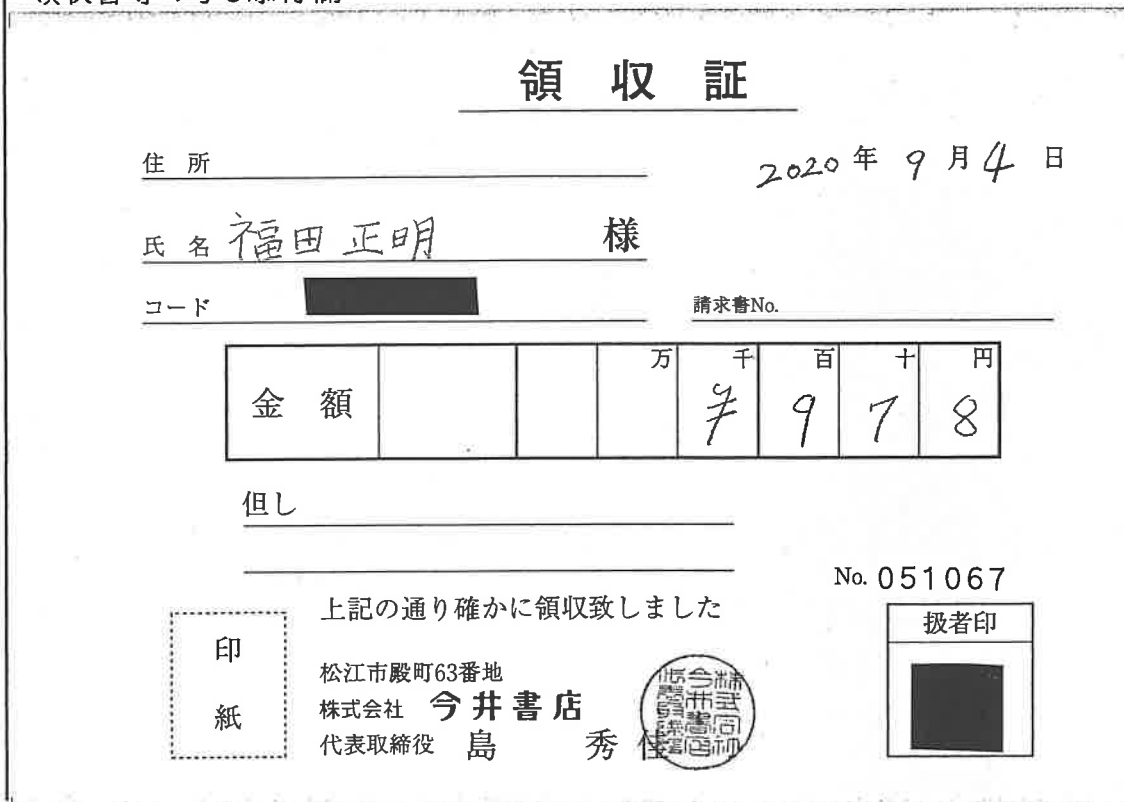 領収証
住所
2020年9月4日
氏名 福田正明 様
コード
請求書No.
金額 万 千 百 十 円
¥978
但し
No. 051067
上記の通り確かに領収致しました
扱者印
印紙
松江市殿町63番地
株式会社 今井書店
代表取締役 島 秀佳